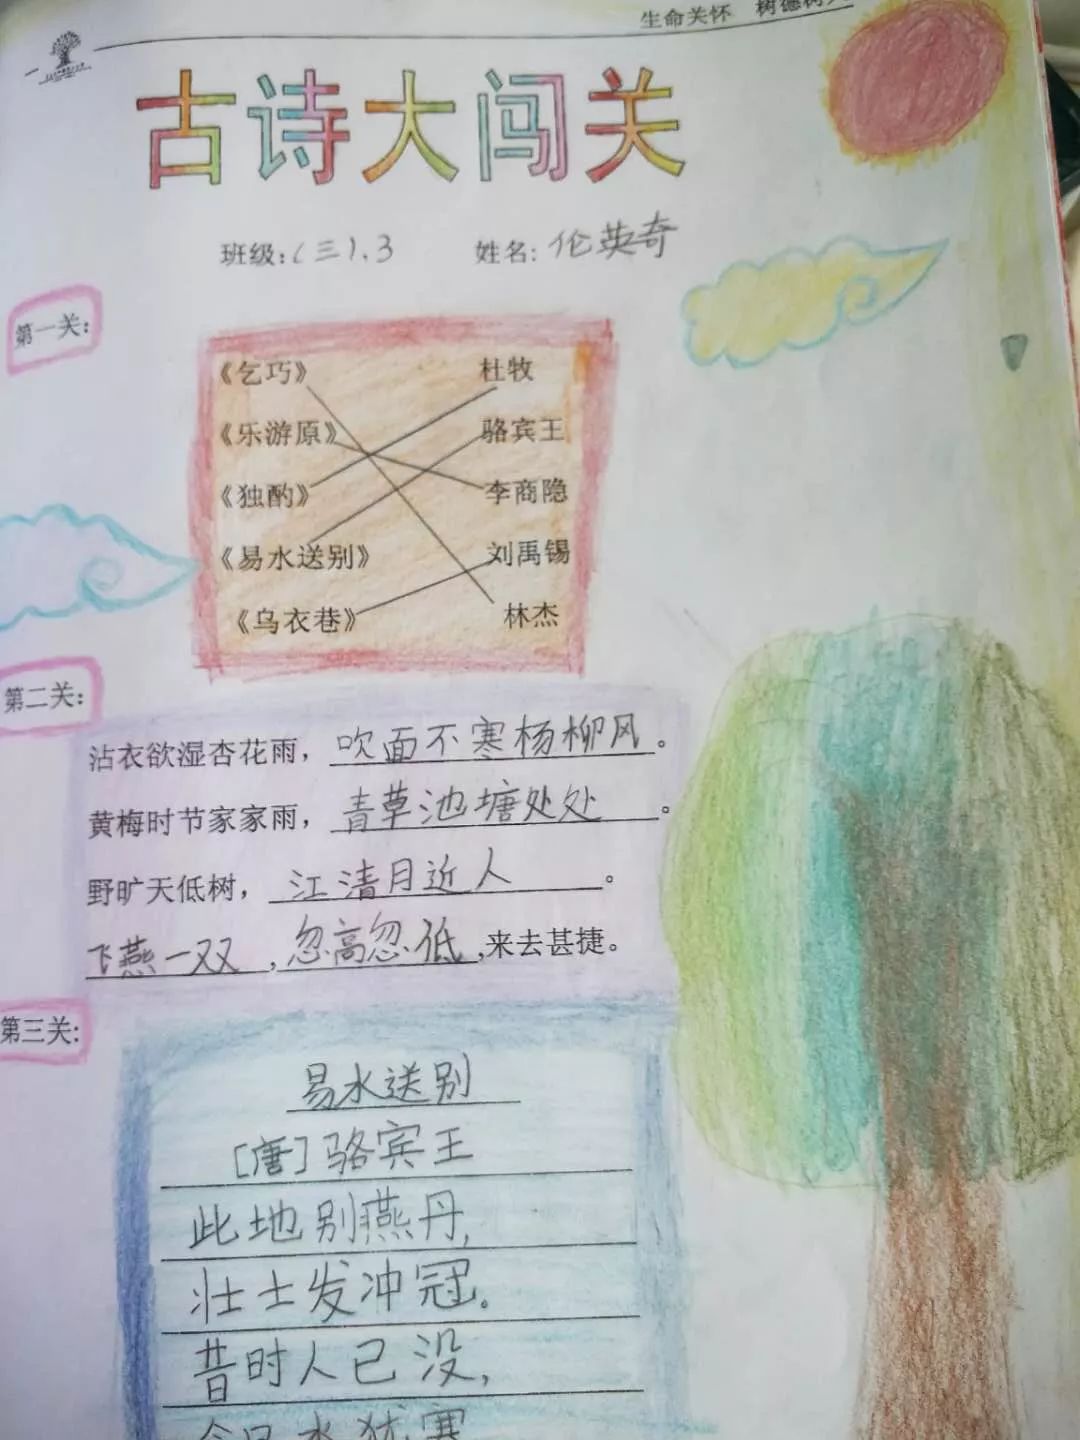 生命关怀 树德树人
古诗大闯关
班级:(三).3 姓名:伦英奇
第一关:
《乞巧》 杜牧
《乐游原》 骆宾王
《独酌》 李商隐
《易水送别》 刘禹锡
《乌衣巷》 林杰
第二关:
沾衣欲湿杏花雨，吹面不寒杨柳风。
黄梅时节家家雨，青草池塘处处。
野旷天低树，江清月近人。
飞燕一双，忽高忽低，来去甚捷。
第三关:
易水送别
[唐]骆宾王
此地别燕丹，
壮士发冲冠。
昔时人已没，
今日水犹寒